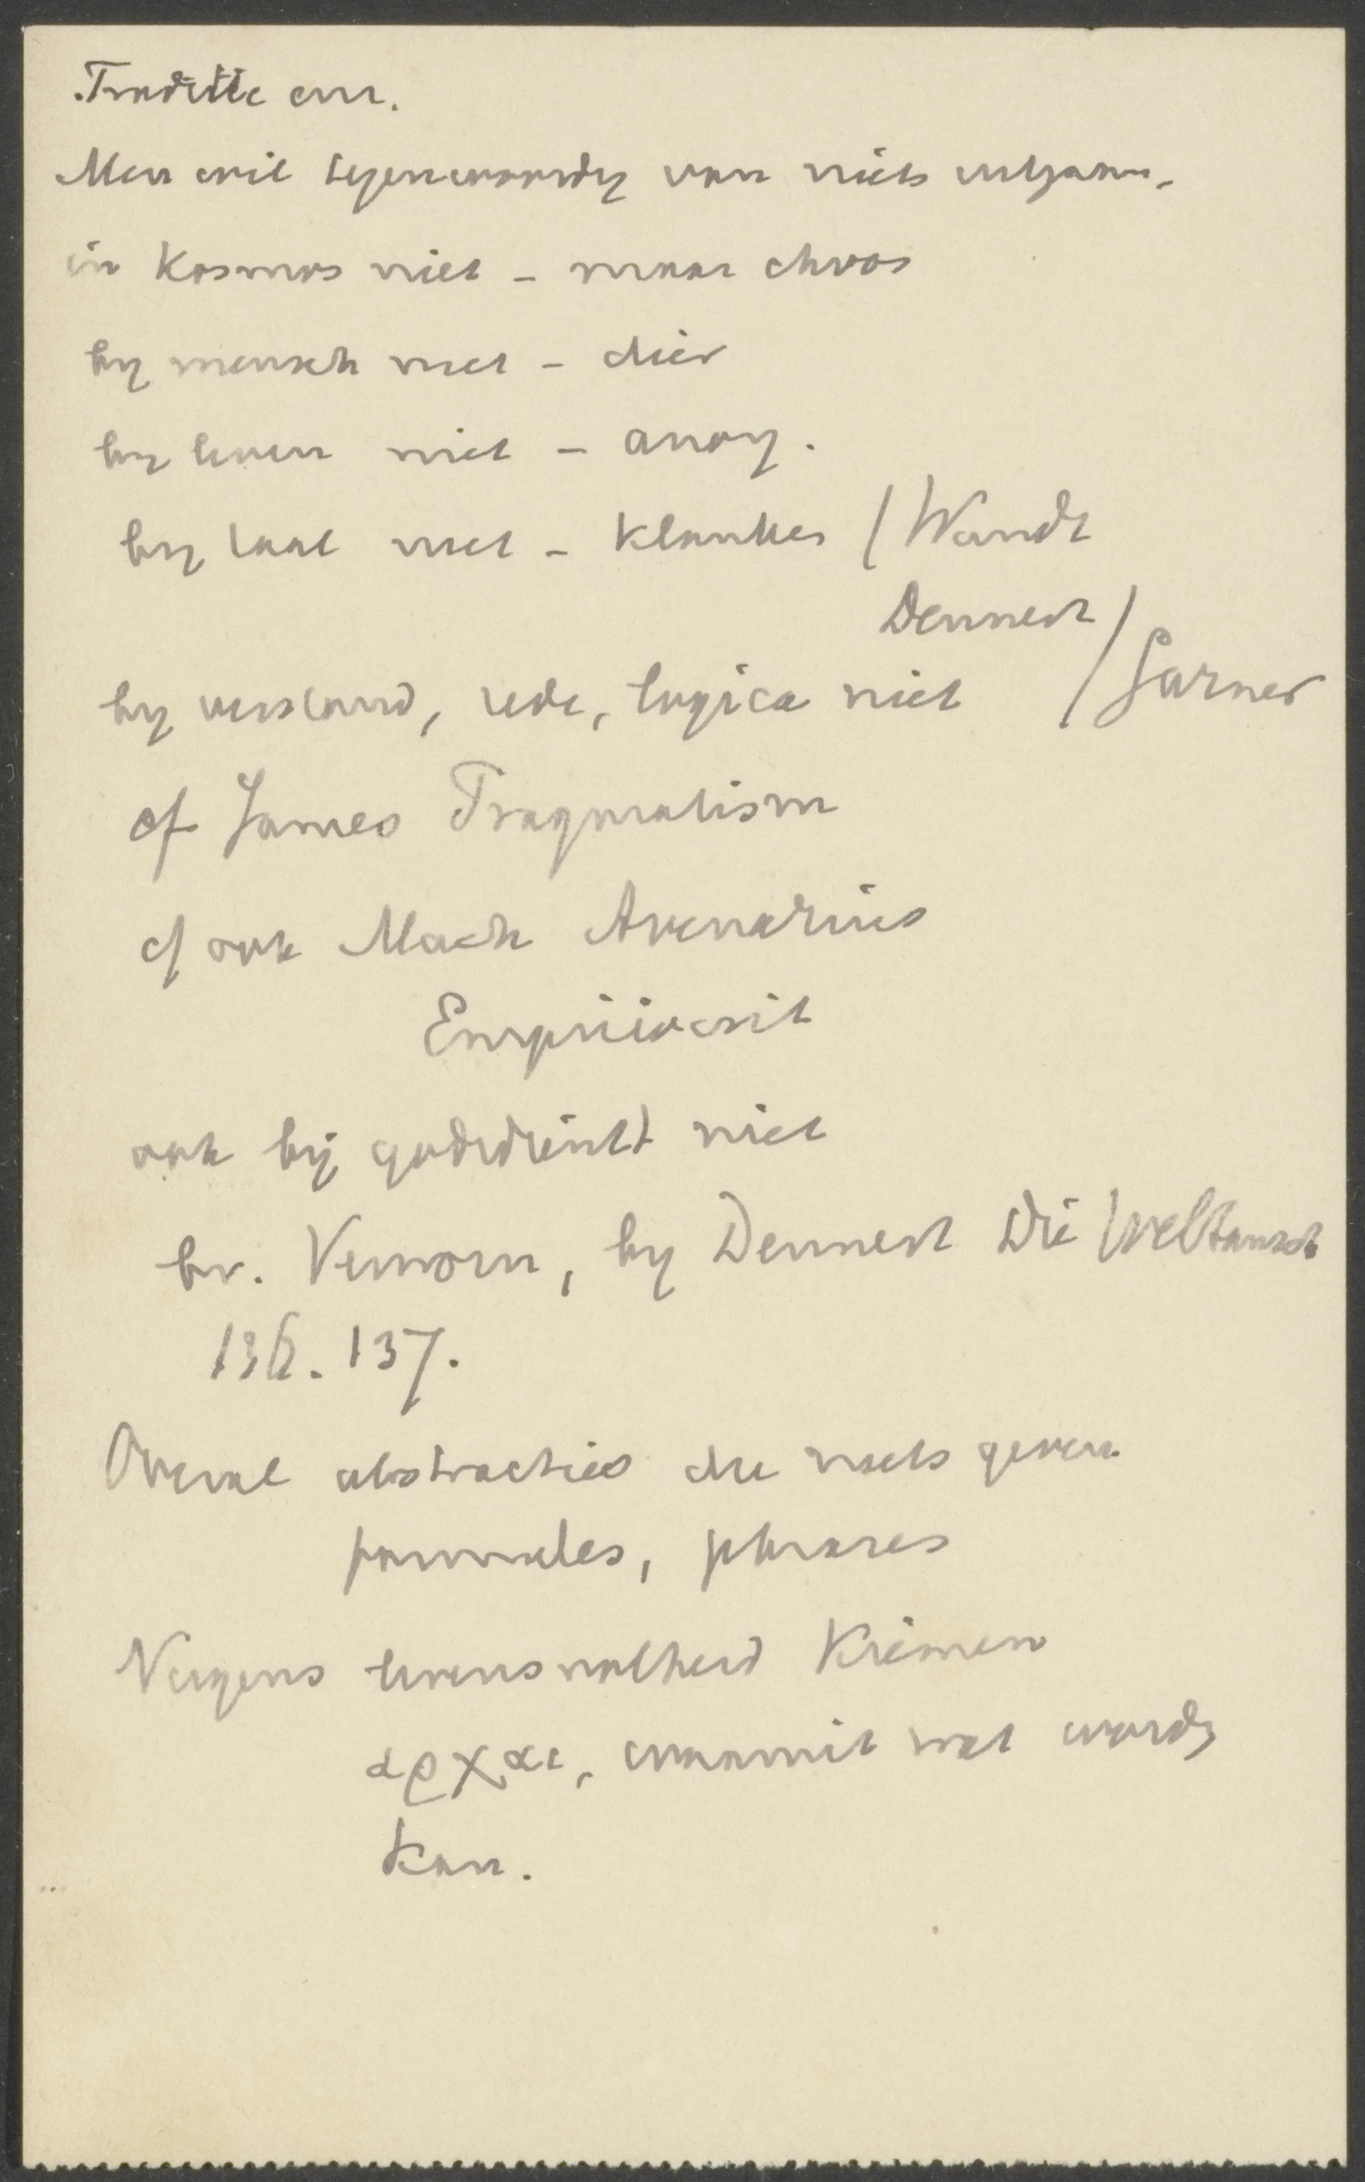 Traditie enz.
Men wil tegenwoordig van niets uitgaan.
in Kosmos niet - maar chaos
by mensch niet - dier
by leven niet - anorg.
by taal niet - klanken / Wundt
Dennert /
by verstand, rede, logica niet / Garner
cf James Pragmatism
cf ook Mach Avenarius
Empiriocrit
ook bij godsdienst niet
bv. Verworn, by Dennert Die Weltansch
136. 137.
Overal abstracties die niets geven.
formules, phrases
Nergens levensvatbare Kiemen
αρχαι, waaruit wat worden
kan.